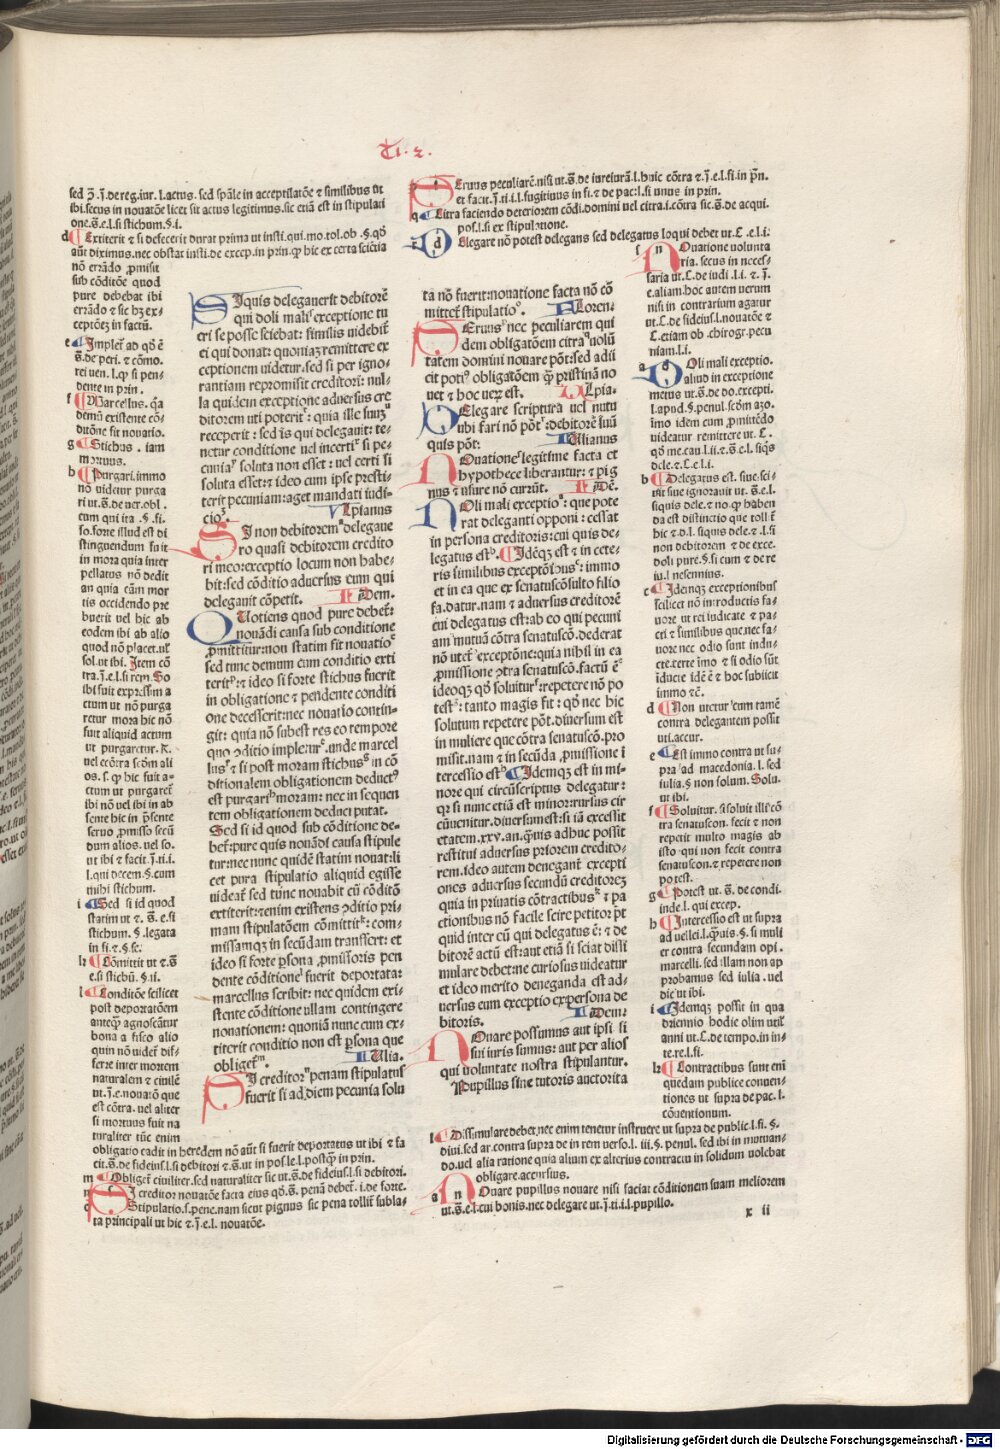 Ti. 2.
sed ꝫ .ī. de reg. iur. l. actus. sed spāle in acceptilatōe ⁊ similibus ut
ibi. secus in nouatōe licet sit actus legitimus. sic etiā est in stipulari
one. s̄. e. l. si stichum. §. i.
d Extiterit ⁊ si defecerit durat prima ut insti. qui. mo. tol. ob. §. qd̄
aūt diximus. nec obstat insti. de excep. in prin. ꝙ hic ex certa scīetia
nō errādo ꝓmisit
sub cōditōe quod
pure debebat ibi
errādo ⁊ sic hꝫ ex-
ceptōeꝫ in factū.
e Impleret̄ ad qd̄ ē
s̄. de peri. ⁊ cōmo.
rei uen. l. ꝙ si pen-
dente in prin.
f Marcellus. q̄a
demū existente cō-
ditōne fit nouatio.
g Stichus. iam
mortuus.
h Purgari. immo
nō uidetur purga
ri ut. s̄. de uer. obl.
cum qui ita. §. fi.
so. forte illud est di
stinguendum fuit
in mora quia inter
pellatus nō dedit
an quia cām mor
tis occidendo pre
buerit uel hic ab
eodem ibi ab alio
quod nō placet. ul̓
sol. ut ibi. Item cō
tra. ī. e. l. si rem. So
ibi fuit expressim a
ctum ut nō purga
retur mora hic nō
fuit aliquid actum
ut purgaretur. R.
uel ecōtra scōm ali
os. s. ꝙ hic fuit a-
ctum ut purgaret̄
ibi nō uel ibi in ab
sente hic in p̄sente
seruo ꝓmisso secū
dum alios. uel so.
ut ibi ⁊ facit. ī. ti. i.
l. qui decem. §. cum
mihi stichum.
i Sed si id quod
statim ut ⁊. s̄. e. si
stichum. §. legata
in fi. ⁊. §. se.
k Cōmittit ut ⁊. s̄
e. si stichū. §. ii.
l Conditōe scilicet
post deportatōem
anteq̄ agnoscātur
bona a fisco alio
quin nō uidet̄ dif-
ferre inter mortem
naturalem ⁊ ciuilē
ut. ī. e. nouatō que
est cōtra. uel aliter
si mortuus fuit na
turaliter tūc enim
obligatio cadit in heredem nō aūt si fuerit deportatus ut ibi ⁊ fa
cit. s̄. de fideius. l. si debitori ⁊. s̄. ut in pos. le. l. postq̄ in prin.
m Obliget̄ ciuiliter. sed naturaliter sic ut. s̄. de fideius. l. si debitori.
n Si creditor nouatōe facta eius qd̄. s̄. penā debet̄. i. de forte.
o Stipulatio. s. pene. nam sicut pignus sic pena tollit̄ subla-
ta principali ut hic ⁊. ī. e. l. nouatōe.
Si quis delegauerit debitorē
qui doli mali exceptione tu
eri se posse sciebat: similis uidebit̄
ei qui donat: quoniaꝫ remittere ex
ceptionem uidetur. sed si per igno-
rantiam repromisit creditori: nul-
la quidem exceptione aduersus cre
ditorem uti poterit: quia ille suuꝫ
receperit: sed is qui delegauit: te-
netur conditione uel incerti si pe-
cunia soluta non esset: uel certi si
soluta esset: ⁊ ideo cum ipse presti-
terit pecuniam: aget mandati iudi-
cio. Vlpianus
Si non debitorem delegaue
ro quasi debitorem credito
ri meo: exceptio locum non habe-
bit: sed cōditio aduersus eum qui
delegauit cōpetit. Idem.
Quotiens quod pure debet̄:
nouādi causa sub conditione
ꝓmittitur: non statim fit nouatio
sed tunc demum cum conditio exti
terit: ⁊ ideo si forte stichus fuerit
in obligatione ⁊ pendente conditi
one decesserit: nec nouatio contin-
git: quia nō subest res eo tempore
quo ꝯditio impletur. unde marcel
lus ⁊ si post moram stichus in cō
ditionalem obligationem deductꝰ
est purgari moram: nec in sequen
tem obligationem deduci putat.
Sed si id quod sub cōditione de-
bet̄: pure quis nouādi causa stipule
tur: nec nunc quidē statim nouat: li
cet pura stipulatio aliquid egisse
uideat̄ sed tūc nouabit cū cōditō
extiterit: ⁊ enim existens ꝯditio pri-
mam stipulatōem cōmittit: com-
missamqꝫ in secūdam transfert: et
ideo si forte ꝑsona ꝓmissoris pen
dente cōditione fuerit deportata:
marcellus scribit: nec quidem exi-
stente cōditione ullam contingere
nouationem: quoniā nunc cum ex-
titerit conditio non est ꝑsona que
obliget̄. Iulia.
Si creditor penam stipulatus
fuerit si ad diem pecunia solu
p Seruus peculiarē. nisi ut. s̄. de iureiurā. l. huic cōtra ⁊. ī. e. l. fi. in p̄n.
et facit. ī. ti. i. l. fugitiuus in fi. ⁊ de pac. l. si unus in prin.
q Citra faciendo deteriorem cōdi. domini uel citra. i. cōtra sic. s̄. de acqui.
pos. l. si ex stipulatione.
r Delegare nō potest delegans sed delegatus loqui debet ut. C. e. l. i.
ta nō fuerit: nouatione facta nō cō
mittet̄ stipulatio. Floren-
Seruus nec peculiarem qui
dem obligatōem citra uolū
tatem domini nouare pōt: sed adii
cit potiꝰ obligatōem q̄ pristinā no
uet ⁊ hoc ueꝝ est. Vlpia-
Delegare scriptura uel nutu
ubi fari nō pōt: debitorē suū
quis pōt: Iulianus
Nouatione legitime facta et
hypothece liberantur: ⁊ pig
nus ⁊ usure nō currūt. Pē.
Noli mali exceptio: que pote
rat deleganti opponi: cessat
in persona creditoris: cui quis de-
legatus est. Idēqꝫ est ⁊ in cete-
ris similibus exceptōibus: immo
et in ea que ex senatuscōsulto filio
fa. datur. nam ⁊ aduersus creditorē
cui delegatus est: ab eo qui pecuni
am mutuā cōtra senatuscō. dederat
nō utet̄ exceptōne: quia nihil in ea
ꝓmissione ꝯtra senatuscō. factū ē
ideoqꝫ qd̄ soluitur: repetere nō po
test: tanto magis sit: qd̄ nec hic
solutum repetere pōt. diuersum est
in muliere que cōtra senatuscō. pro
misit. nam ⁊ in secūda ꝓmissione i
tercessio est. Idemqꝫ est in mi-
nore qui circūscriptus delegatur:
qꝛ si nunc etiā est minor: rursus cir
cūuenitur. diuersum est: si iā excessit
etatem. xxv. an. q̄uis adhuc possit
restitui aduersus priorem credito-
rem. ideo autem denegant̄ excepti
ones aduersus secundū creditoreꝫ
quia in priuatis cōtractibus ⁊ pa
ctionibus nō facile scire petitor pt
quid inter eū qui delegatus ē: ⁊ de
bitorē actū est: aut etiā si sciat dissi
mulare debet: ne curiosus uideatur
et ideo merito deneganda est ad-
uersus eum exceptio ex persona de
bitoris. Idem:
Nouare possumus aut ipsi si
sui iuris sumus: aut per alios
qui uoluntate nostra stipulantur.
Pupillus sine tutoris auctorita
s Nouatione uolunta
ria. secus in neces-
saria ut. C. de iudi. l. i. ⁊. ī.
e. aliam. hoc autem uerum
nisi in contrarium agatur
ut. C. de fideius. l. nouatōe ⁊
C. etiam ob. chirogr. pecu
niam. l. i.
a Doli mali exceptio.
aliud in exceptione
metus ut. s̄. de do. excepti.
l. apud. §. penul. scōm azo.
imo idem cum ꝓmittēdo
uideatur remittere ut. C.
qd̄ me. cau. l. ii. ⁊. s̄. e. l. si qꝫ
dele. ⁊. C. e. l. i.
b Delegatus est. siue sci-
uit siue ignorauit ut. s̄. e. l.
si quis dele. ⁊ no. ꝙ haben
da est distinctio que toll t̄
hic ⁊. d. l. si quis dele. ⁊. l. si
non debitorem ⁊ de exce.
doli pure. §. si cum ⁊ de re
iu. l. nesennius.
c Idemqꝫ exceptionibus
scilicet nō introductis fa-
uore ut rei iudicate ⁊ pa-
cti ⁊ similibus que nec fa-
uore nec odio sunt indu-
cte. certe imo ⁊ si odio sūt
iducte idē ē ⁊ hoc subiicit
immo ⁊ē.
d Non utetur eum tamē
contra delegantem possit
uti. accur.
e Est immo contra ut su-
pra ad macedonia. l. sed
iulia. §. non solum. Solu.
ut ibi.
f Soluitur. si soluit ille cō
tra senatuscon. fecit ⁊ non
repetit multo magis ab
isto qui non fecit contra
senatuscon. ⁊ repetere non
potest.
g Potest ut. s̄. de condi-
inde. l. qui excep.
h Intercessio est ut supra
ad uellei. l. q̄uis. §. si muli
er contra secundam opi.
marcelli. sed illam non ap
probamus sed iulia. uel
dic ut ibi.
i Idemqꝫ possit in qua
driennio hodie olim utili
anni ut. C. de tempo. in in-
te. re. l. fi.
k Contractibus sunt eni
quedam publice conuen-
tiones ut supra de pac. l.
cōuentionum.
l Dissimulare debet. nec enim tenetur instruere ut supra de public. l. fi. §.
diui. sed ar. contra supra de in rem uerso. l. iii. §. penul. sed ibi in mutuan-
do. uel alia ratione quia alium ex alterius contractu in solidum uolebat
obligare. accursius.
a Nouare pupillus nouare nisi faciat cōditionem suam meliorem
ut. s̄. e. l. cui bonis. nec delegare ut. ī. ti. i. l. pupillo.
x ii
Digitalisierung gefördert durch die Deutsche Forschungsgemeinschaft - DFG